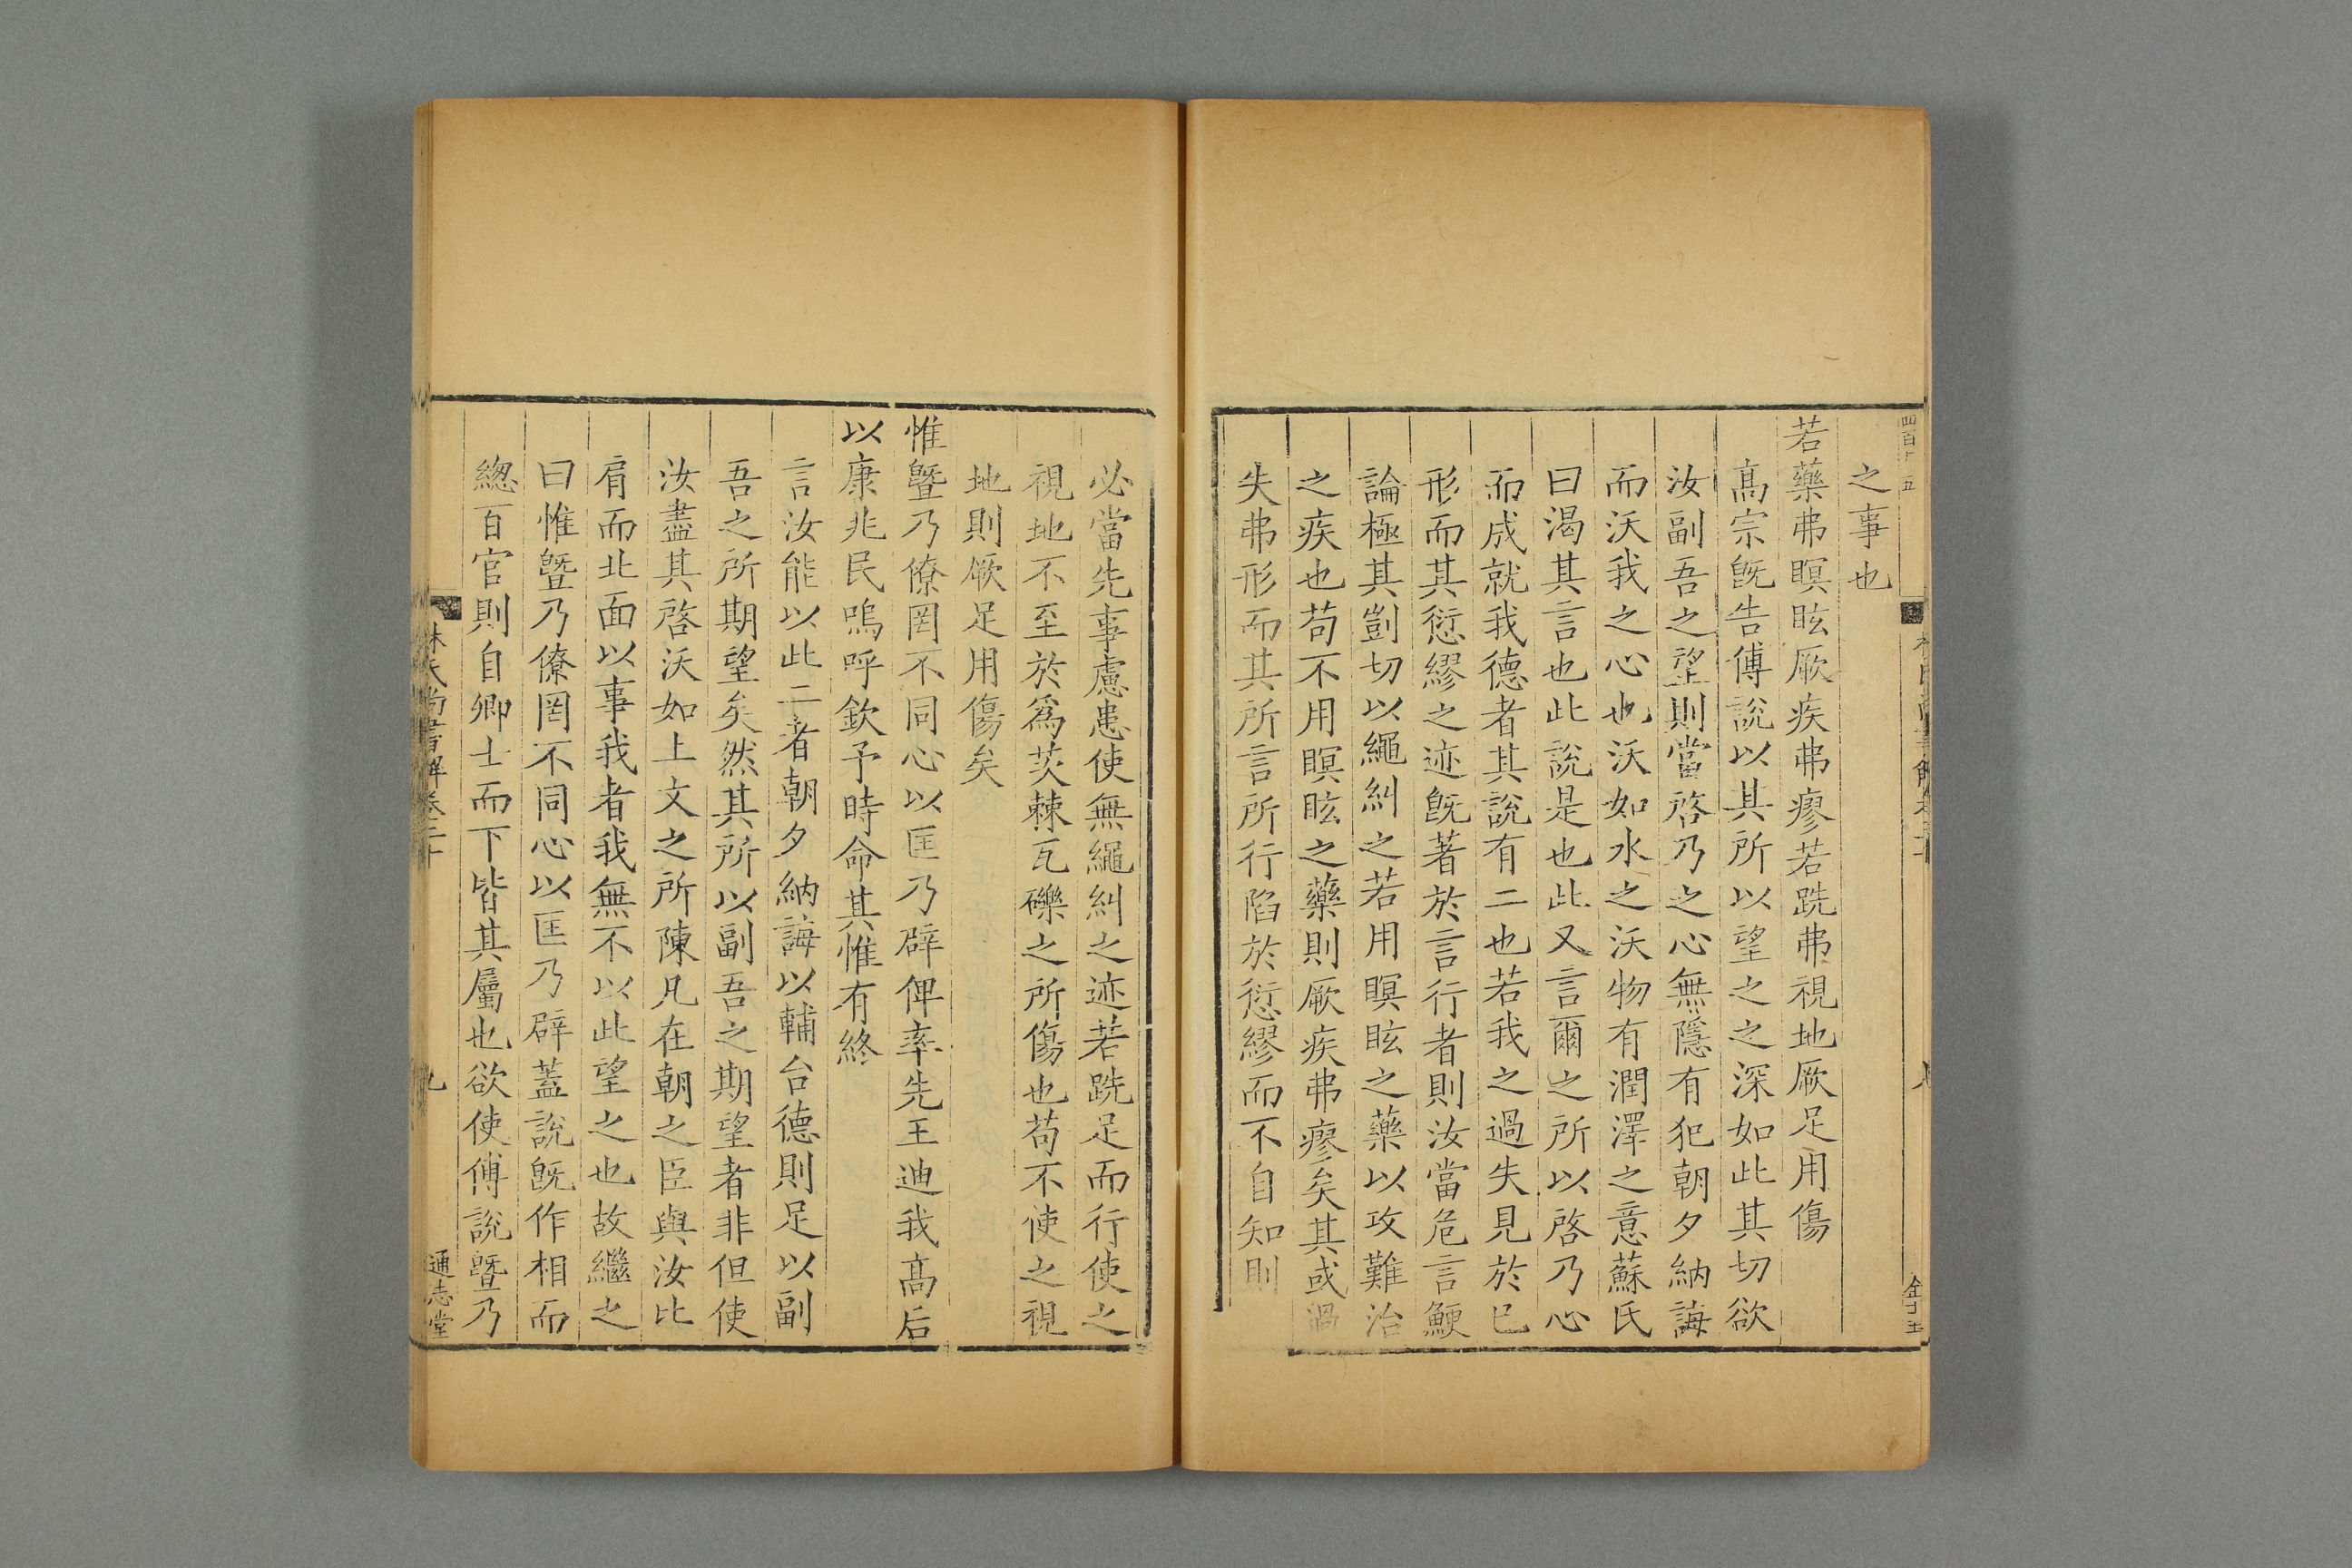 四百十五
之事也
若藥弗瞑眩厥疾弗瘳若跣弗視地厥足用傷
髙宗旣告傅說以其所以望之之深如此其切欲
汝副吾之望則當啓乃之心無隱有犯朝夕納誨
而沃我之心也沃如水之沃物有潤澤之意蘇氏
曰渴其言也此說是也此又言爾之所以啓乃心
而成就我德者其說有二也若我之過失見於已
形而其愆繆之迹旣著於言行者則汝當危言鯁
論極其剴切以繩糾之若用瞑眩之藥以攻難治
之疾也苟不用瞑眩之藥則厥疾弗瘳矣其或過
失弗形而其所言所行陷於愆繆而不自知則
必當先事慮患使無繩糾之迹若跣足而行使之
視地不至於爲茨棘瓦礫之所傷也苟不使之視
地則厥足用傷矣
惟曁乃僚罔不同心以匡乃辟俾率先王迪我髙后
以康兆民嗚呼欽予時命其惟有終
言汝能以此二者朝夕納誨以輔台德則足以副
吾之所期望矣然其所以副吾之期望者非但使
汝盡其啓沃如上文之所陳凡在朝之臣與汝比
肩而北面以事我者我無不以此望之也故繼之
曰惟曁乃僚罔不同心以匡乃辟蓋說旣作相而
緫百官則自卿士而下皆其屬也欲使傅說曁乃
林氏尚書解卷二十
九
通志堂